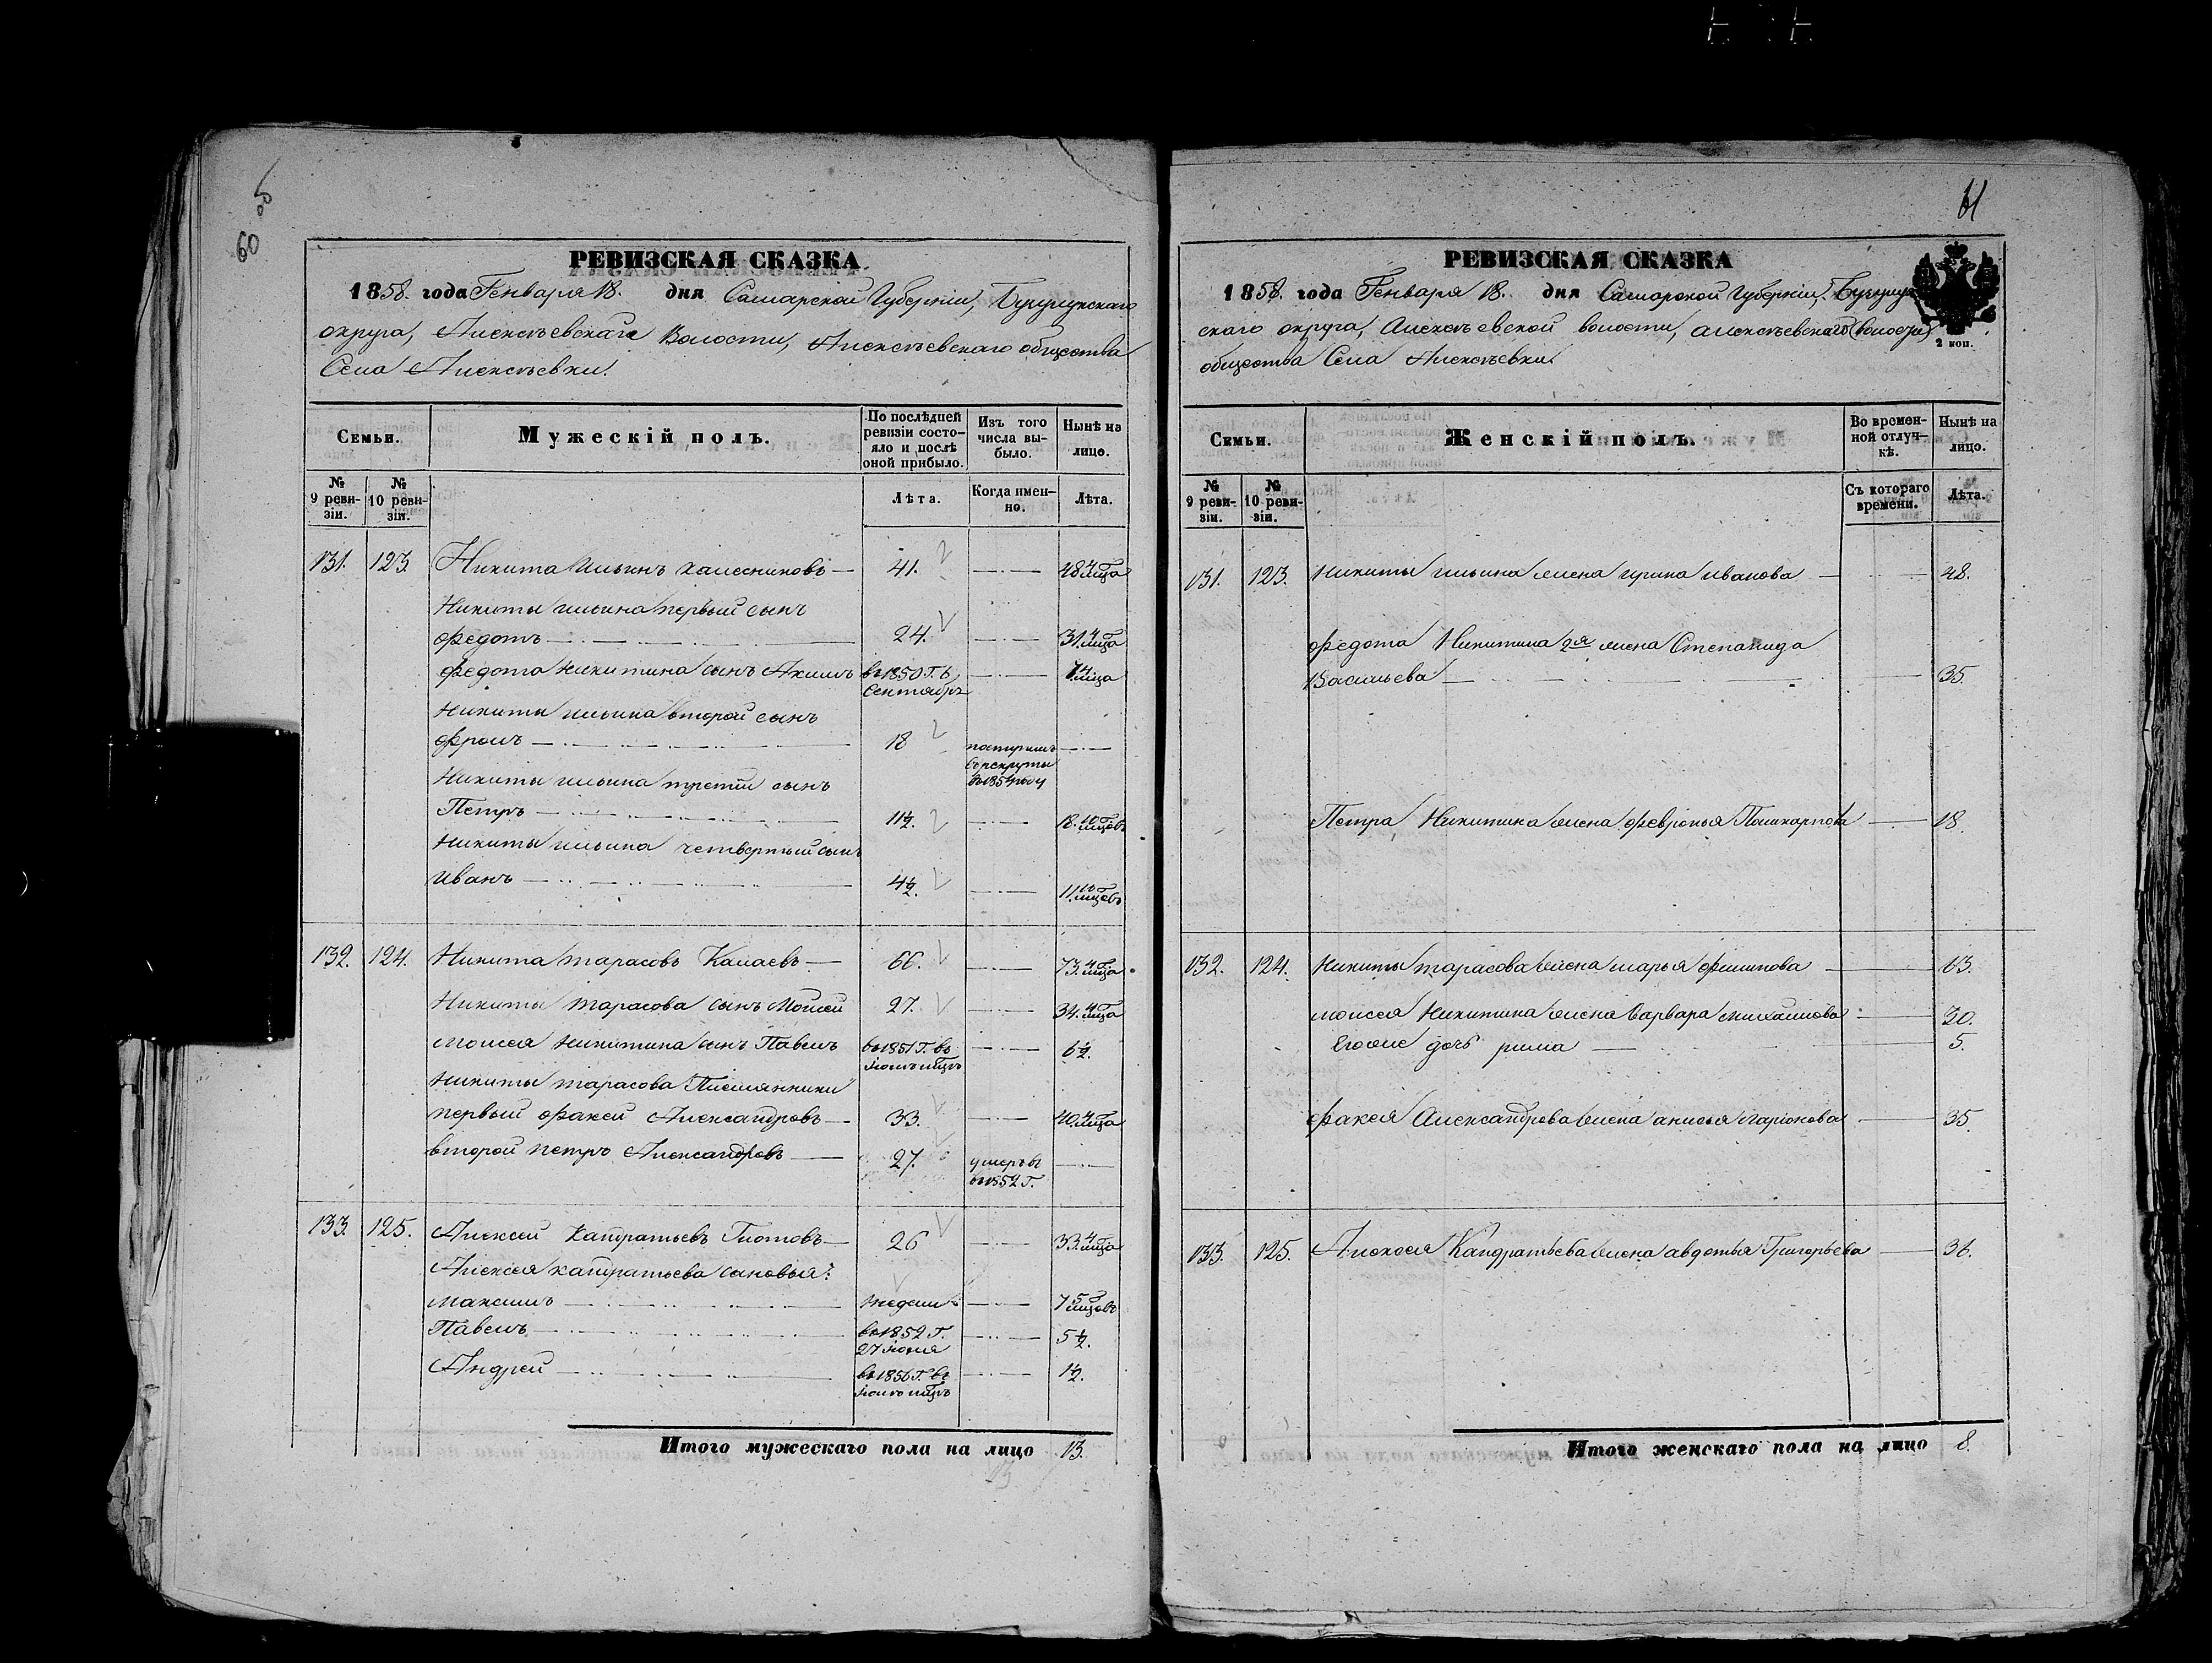 60
РЕВИЗСКАЯ СКАЗКА
1858. года Генваря 18. дня Самарской Губерніи, Бузулукскаго
округа, Алексѣевскаго Волости, Алексѣевскаго общества
Села Алексѣевки.
Семьи.
Мужескій полъ.
По послѣдней ревизіи состояло и послѣ оной прибыло.
Изъ того числа выбыло.
Нынѣ на лицо.
№ 9 ревизіи.
№ 10 ревизіи.
Лѣта.
Когда именно.
Лѣта.
131. 123. Никита Ильинъ Калесниковъ — 41. 48. 4 мца
Никиты ильина первый сынъ
Федотъ 24. 31. 4 мца
Федота Никитина сынъ Акимъ въ 1850 Г. въ Сентябрѣ 7. 4 мца
Никиты ильина второй сынъ
Фролъ 18 поступилъ въ рекруты въ 1854 году
Никиты ильина третій сынъ
Петръ 11½. 18. 10 мцовъ
Никиты ильина четвертый сынъ
Иванъ 4½. 11. 10 мцовъ
132. 124. Никита Тарасовъ Калаевъ — 66. 73. 4 мца
Никиты Тарасова сынъ Моисей 27. 34. 4 мца
Моисея Никитина сынъ Павелъ въ 1851 Г. въ Іюлѣ мцѣ 6½.
Никиты Тарасова Племянники
первый Факей Александровъ — 33. 40. 4 мца
второй Петръ Александровъ 27. умеръ въ 1852 Г.
133. 125. Алексей Кандратьевъ Глотовъ — 26 33. 4 мца
Алексея Кандратьева сыновья:
Максимъ недели 7 5 мцовъ
Павелъ въ 1852 Г. 27 Іюня 5½.
Андрей въ 1856 Г. въ Іюлѣ мцѣ 1½.
Итого мужескаго пола на лицо 13.
61
РЕВИЗСКАЯ СКАЗКА
1858. года Генваря 18. дня Самарской Губерніи. Бузулук
скаго округа, Алексѣевской волости, Алексѣевскаго (волости)
общества Села Алексѣевки.
2 коп.
Семьи.
Женскій полъ.
Во временной отлучкѣ.
Нынѣ на лицо.
№ 9 ревизіи.
№ 10 ревизіи.
Съ котораго времени.
Лѣта.
131. 123. Никиты ильина жена Ирина Иванова 48.
Федота Никитина 2я жена Степанида
Васильева 35.
Петра Никитина жена Февронья Поликарпова 18.
132. 124. Никиты Тарасова жена Марья Филипова 63.
Моисея Никитина жена Варвара Михайлова 30.
Егоже дочь 5.
Факея Александрова жена Анисья Ларіонова 35.
133. 125. Алексея Кандратьева жена Авдотья Григорьева 36.
Итого женскаго пола на лицо 8.